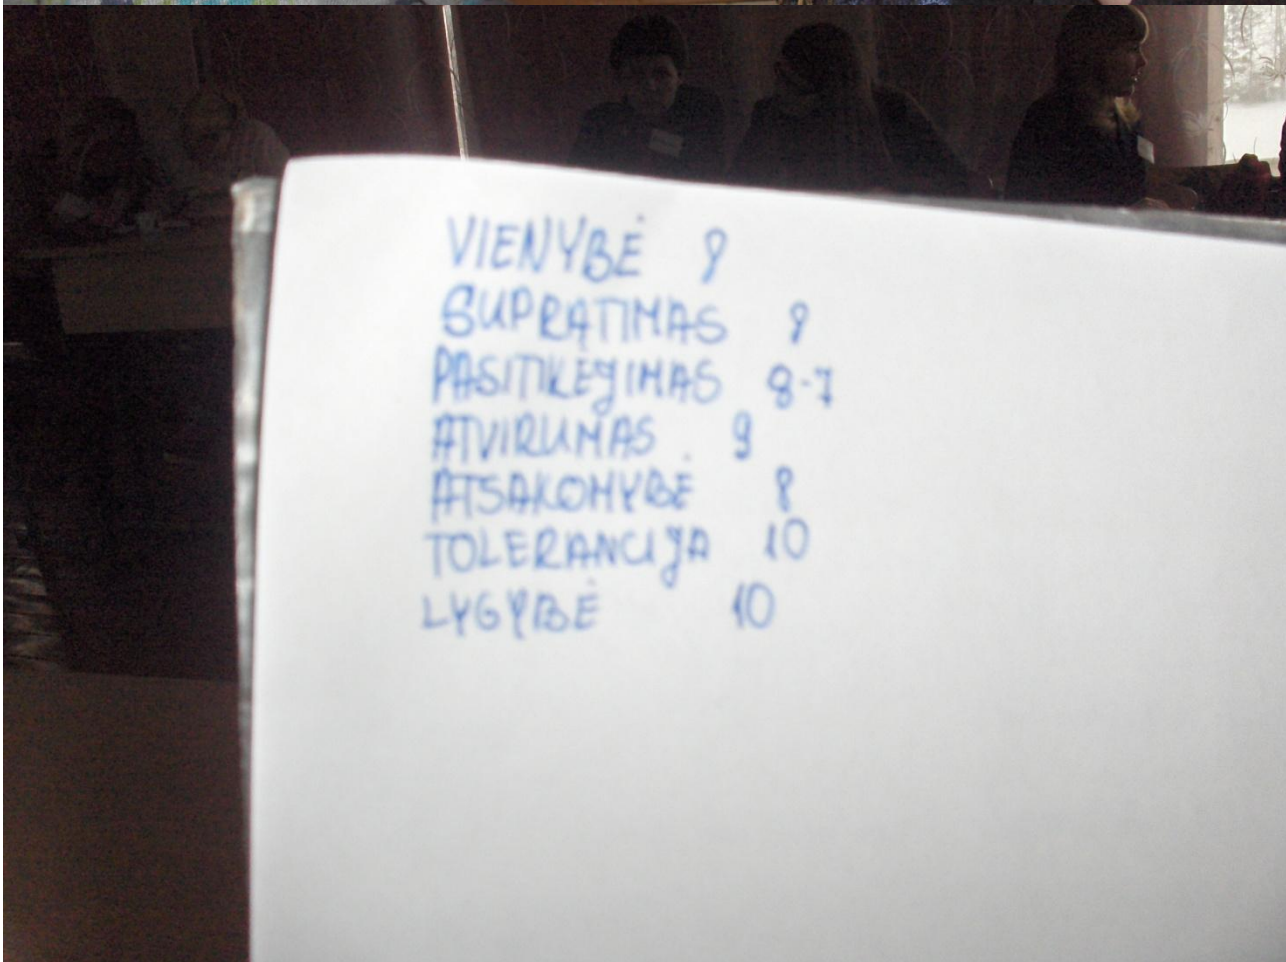 VIENYBĖ 8
SUPRATIMAS 8
PASITIKĖJIMAS 8-7
ATVIRUMAS 9
ATSAKOMYBĖ 8
TOLERANCIJA 10
LYGYBĖ 10